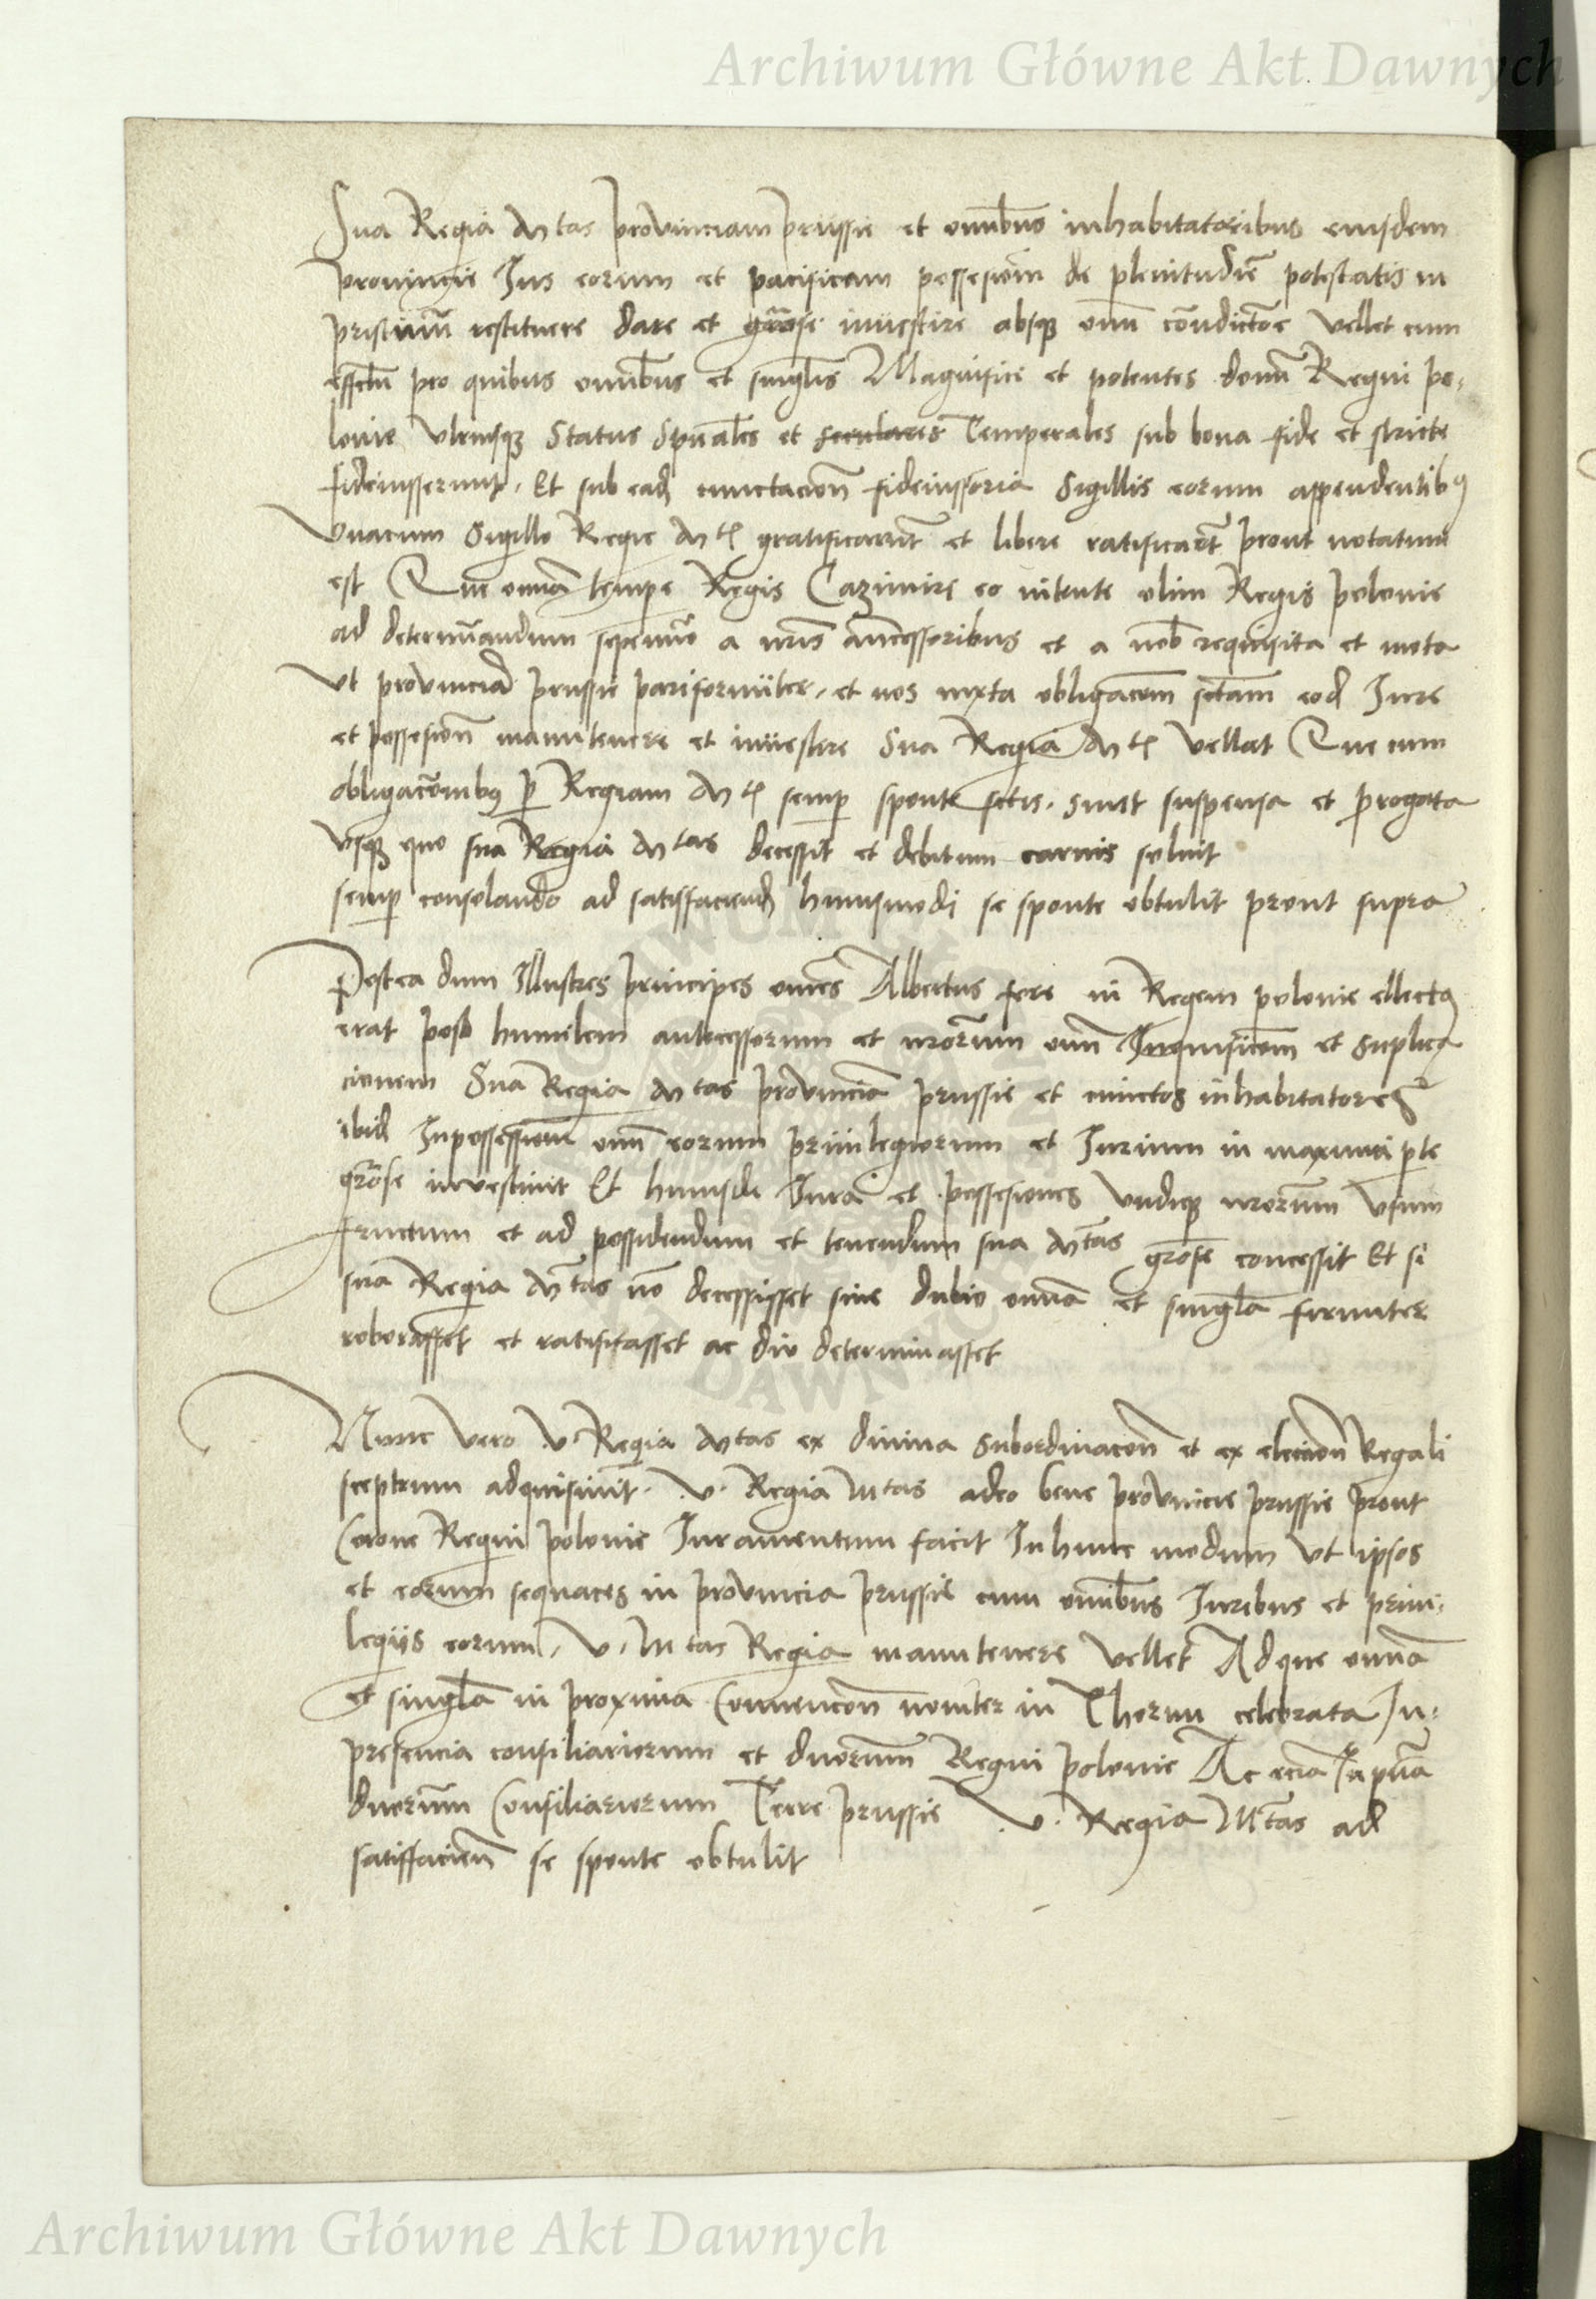 Archiwum Główne Akt Dawnych
Sua Regia Mtas provinciam prussie et omnibus inhabitatoribus eiusdem
provincie Jus eorum et pacificam possesioem de plenitudie potestatis in
pristinum restituere dare et graose investire absque omni condictoe vellet cum
effectu pro quibus omnibus et singulis Magnifici et potentes domini Regni po-
lonie utriusque Status Spuales et seculares Temporales sub bona fide et stricte
fideiusserunt. Et sub eadem fideiussoria Sigillis eorum appendentibus
Unacum Sigillo Regie Mtis gratificarunt et libere ratificarunt prout notatum
est Que omnia tempore Regis Cazimire eo olim Regis polonie
ad determinandum a nris ancessoribus et a nob requisita et mota
Ut provinciam prussie pariformiter, et nos iuxta obligacem fctam eod Jure
et possesionem manutenere et investire Sua Regia Mts vellet Que cum
obligacionibus per Regiam Mtem semper sponte fctis. sunt suspensa et progata
usque quo sua Regia Mtas decessit et debitum carnis soluit
semper consolando ad satisffaciendum huiusmodi se sponte obtulit prout supra
Postea dum Illustres principes omnes Albertus fere in Regem polonie ellectus
erat post humilem antecessorum et nrorum omnium et Suplica
cionem Sua Regia Mtas provinciam prussie et cunctos inhabitatores
ibidem In possessionem omnium eorum privilegiorum et Jurium in maxima parte
graose investivit Et huiusdi Jura et possesiones undique nrorum usum
fructum et ad possidendum et tenendum sua Mtas graose concessit Et si
sua Regia Mtas non decessisset sine dubio omnia et singula firmiter
roborasset et ratificasset ac diu determinasset
Nunc vero V. Regia Mtas ex divina Subordinacione et ex eleccione Regali
sceptrum adquisiuit. V. Regia Mtas adeo bene provincie prussie prout
Corone Regni polonie Juramentum facit In hunc modum Ut ipsos
et eorum sequaces in provincia prussie cum omnibus Juribus et privi-
legiis eorum. V. Mtas Regia manutenere vellet Ad que omnia
et singula in proxima Convencione noviter in Thorun celebrata In-
presencia consiliariorum et dnorum Regni polonie Ac eciam In pncia
dnorum Consiliariorum Terre prussie V. Regia Mtas ad
satisffaciendum se sponte obtulit
Archiwum Główne Akt Dawnych